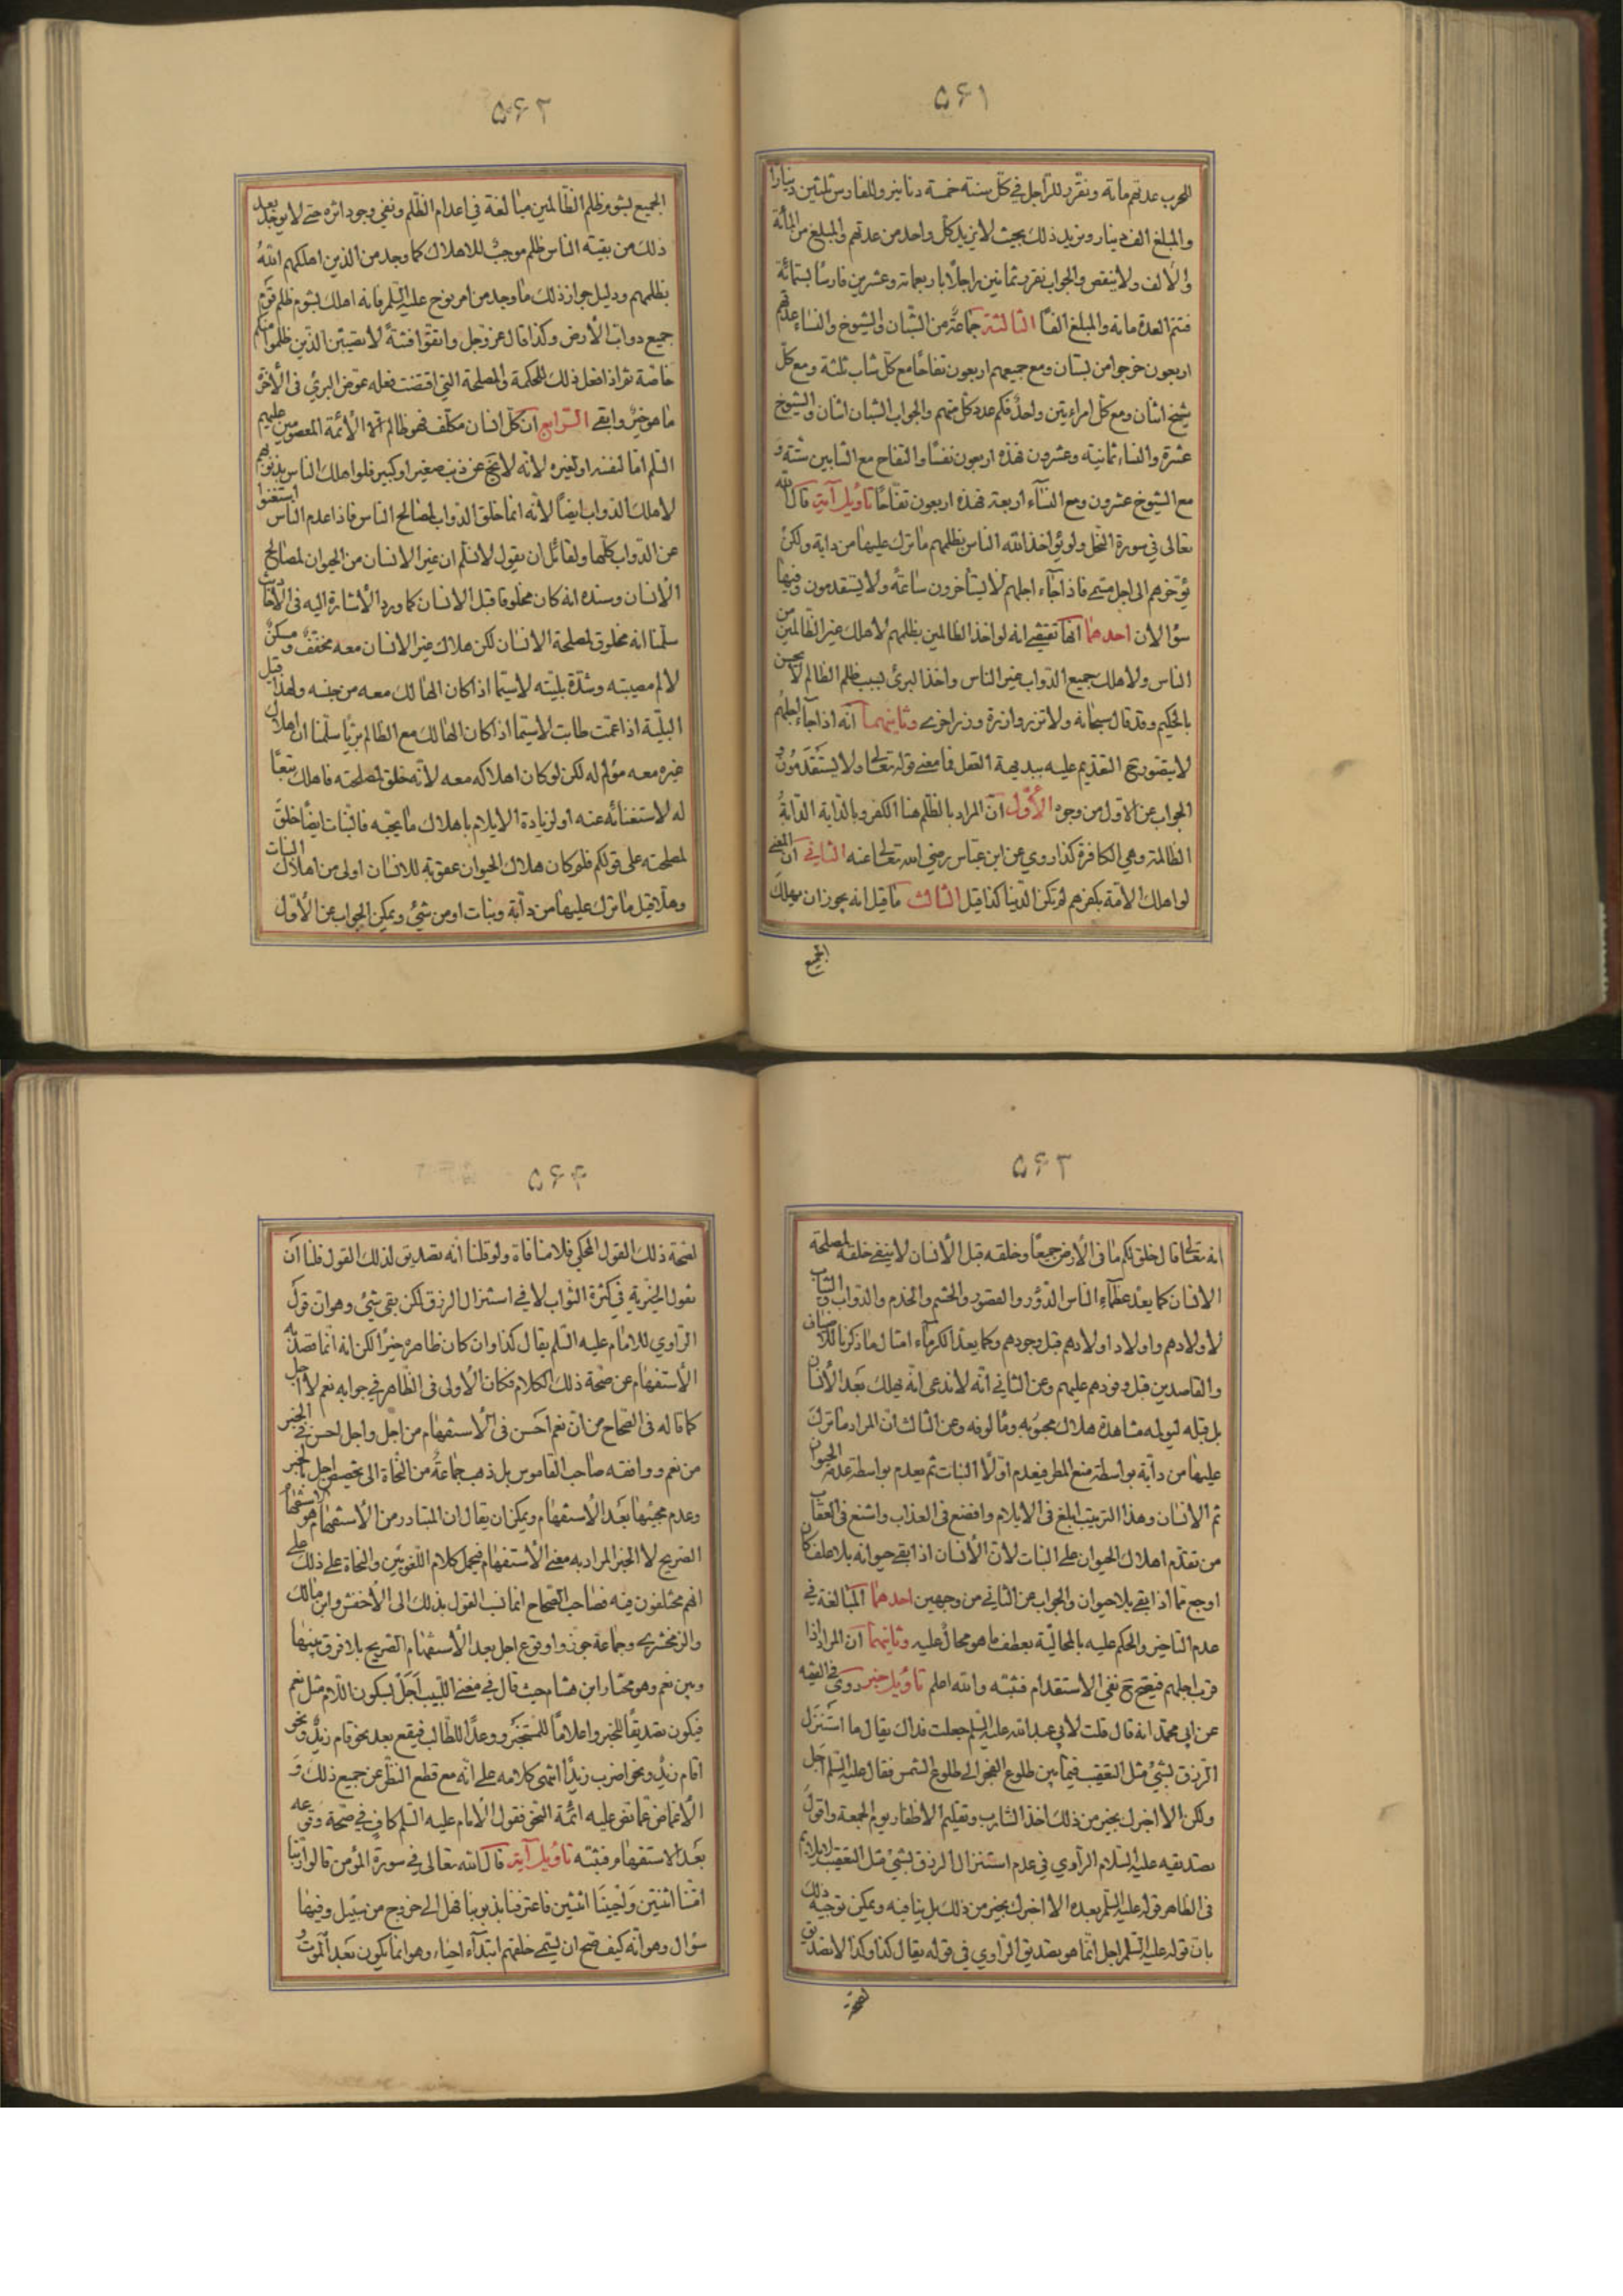 ۵۶۱
للحرب عدتهم مائة ونقرر للراجل في كل سنة خمسة دنانير وللفارس ثلثين دينارا
والمبلغ الف دينار ونريد ذلك بحيث لا يزيد كل واحد من عدتهم والمبلغ من المائة
والألف ولا ينقص والجواب نفرد ثمانين راجلا باربعمائة وعشرين فارسا بستمائة
فتتم العدة مائة والمبلغ الفا الثالثة جماعة من الشبان والشيوخ والنساء عدتهم
اربعون خرجوا من بستان ومع جميعهم اربعون تفاحا مع كل شاب ثلثة ومع كل
شيخ اثنان ومع كل امراءتين واحد فكم عدد كل منهم والجواب الشبان اثنان والشيوخ
عشرة والنساء ثمانية وعشرون فهذه اربعون نفسا والتفاح مع الشابين ستة و
مع الشيوخ عشرون ومع النساء اربعة عشر فهذه اربعون تفاحا تأويل آية قال الله
تعالى في سورة النحل ولو يؤاخذ الله الناس بظلمهم ما ترك عليها من دابة ولكن
يؤخرهم الى اجل مسمى فاذا جاء اجلهم لا يستأخرون ساعة ولا يستقدمون وفيها
سؤالان احدهما انها تقتضي انه لو اخذ الظالمين بظلمهم لأهلك غير الظالمين من
الناس ولأهلك جميع الدواب غير الناس واخذ البرئ بسبب ظلم الظالم لا يحسن
بالحكيم وقد قال سبحانه ولا تزر وازرة وزر اخرى وثانيهما انه اذا جاء اجلهم
لا يتصور ح التقديم عليه ببديهة العقل فما معنى قوله تعالى ولا يستقدمون و
الجواب عن الاول من وجوه الأول ان المراد بالظلم هنا الكفر وبالدابة الدابة
الظالمة وهي الكافرة كذا روي عن ابن عباس رضي الله تعالى عنه الثاني ان المعنى
لو اهلك الأمة بكفرهم لم تكن الدنيا كذا قيل الثالث ما قيل انه يجوز ان يهلك
الجميع
۵۶۲
الجميع لشوم ظلم الظالمين مبالغة في اعدام الظلم ونفي وجود اثره حتى لا يوجد بعد
ذلك من بقية الناس ظلم موجب للاهلاك كما وجد من الذين اهلكهم الله
بظلمهم ودليل جواز ذلك ما وجد من امر نوح عليه السلم فانه اهلك لشوم ظلم قوم
جميع دواب الأرض وكذا قال عز وجل واتقوا فتنة لا تصيبن الذين ظلموا منكم
خاصة ثم اذا فعل ذلك للحكمة والمصلحة التي اقتضت فعله عوض البرئ في الأخرة
ما هو خير وابقى الرابع ان كل انسان مكلف فهو ظالم الا الأئمة المعصومين عليهم
السلم اما لنفسه او لغيره لانه لا يخ عن ذنب صغير او كبير فلو اهلك الناس بذنوبهم
لأهلك الدواب ايضا لأنه انما خلق الدواب لمصالح الناس فاذا عدم الناس استغنوا
عن الدواب كلها ولقائل ان يقول لا نسلم ان غير الانسان من الحيوان لمصالح
الأنسان وسنده انه كان مخلوقا قبل الانسان كما ورد الأشارة اليه في الآفات
سلمنا انه مخلوق لمصلحة الانسان لكن هلاك غير الانسان معه مخفف و مسكن
لالم مصيبته وشدة بليته لا سيما اذا كان الهالك معه من جنسه ولهذا قيل
البلية اذا عمت طابت لا سيما اذا كان الهالك مع الظالم بريا سلمنا ان اهلاك
غيره معه مؤلم له لكن لو كان اهلاكه معه لأنه خلق لمصلحته فاهلك تبعا
له لاستغنائه عنه او لزيادة الايلام باهلاك ما يحبه فالنبات ايضا خلق
لمصلحته على قولكم فلو كان هلاك الحيوان عقوبة للانسان اولى من اهلاك النبات
وهلا قيل ما ترك عليها من دابة ونبات او من شئ ويمكن الجواب عن الأول
۵۶۳
انه تعالى قال خلق لكم ما في الأرض جميعا وخلقه قبل الأنسان لا ينفي خلقه لمصلحة
الانسان كما يعد عظماء الناس الدور والقصور والحشم والخدم والدواب والثياب
لأولادهم واولاد اولادهم قبل وجودهم وكما يعد الكرماء امثال ما ذكرنا للأضياف
والقاصدين قبل وفودهم عليهم وعن الثاني انه لا ندعي انه يهلك بعد الأنسان
بل قبله ليولمه مشاهدة هلاك محبوبه ومألوفه وعن الثالث ان المراد ما ترك
عليها من دابة بواسطة منع المطر فيعدم اولا النبات ثم يعدم بواسطة عدمه الحيوان
ثم الانسان وهذا الترتيب ابلغ في الايلام وافضع في العذاب واشنع في العقاب
من تقدم اهلاك الحيوان على النبات لأن الأنسان اذا بقي حيوانه بلا علف كان
اوجع مما اذا بقي بلا حيوان والجواب عن الثاني من وجهين احدهما المبالغة في
عدم التاخير والحكم عليه بالمحالية بعطف ما هو محال عليه وثانيهما ان المراد اذا
قرب اجلهم فيصح ح نفي الاستقدام فتثبه والله اعلم تأويل خبر روى في الفقيه
عن ابي محمد انه قال قلت لأبي عبد الله عليه السلم جعلت فداك يقال ما استنزل
الرزق بشئ مثل التعقيب فيما بين طلوع الفجر الى طلوع الشمس فقال عليه السلم اجل
ولكن الا اخبرك بخير من ذلك اخذ الشارب وتقليم الأظفار يوم الجمعة واقول
تصديقه عليه السلام الراوي في عدم استنزال الرزق بشئ مثل التعقيب لا يلائم
في الظاهر قوله عليه السلم بعده الا اخبرك بخير من ذلك بل ينافيه ويمكن توجيه ذلك
بان قوله عليه السلم اجل انما هو تصديق الراوي في قوله يقال كذا وكذا لا تصديق
لصحة
۵۶۴
لصحة ذلك القول المحكي فلا منافاة ولو قلنا انه تصديق لذلك القول قلنا ان
نقول الخيرية في كثرة الثواب لا في استنزال الرزق لكن بقي شئ وهو ان قول
الراوي للامام عليه السلم يقال كذا وان كان ظاهره خبرا لكن انه انما قصد به
الأستفهام عن صحة ذلك الكلام فكان الأولى في الظاهر في جوابه نعم لا اجل
كما قاله في الصحاح من ان نعم احسن في الأستفهام من اجل واجل احسن في الخبر
من نعم ووافقه صاحب القاموس بل ذهب جماعة من النحاة الى تخصيص اجل بالخبر
وعدم مجيئها بعد الأستفهام ويمكن ان يقال ان المتبادر من الأستفهام هو الاستفهام
الصريح لا الخبر المراد به معنى الأستفهام فيحمل كلام اللغويين والنحاة على ذلك على
انهم مختلفون فيه فصاحب الصحاح انما نسب القول بذلك الى الأخفش وابن مالك
والزمخشري وجماعة جوزوا وقوع اجل بعد الأستفهام الصريح بلا فرق بينها
وبين نعم وهو مختار ابن هشام حيث قال في مغني اللبيب اجل بسكون اللام مثل نعم
فيكون تصديقا للخبر واعلاما للمستخبر ووعدا للطالب فيقع بعد نحو قام زيد ونحو
اقام زيد ونحو اضرب زيدا انتهى كلامه على انه مع قطع النظر عن جميع ذلك و
الأغماض عما نص عليه ائمة النحو فقول الأمام عليه السلم كاف في صحة وقوعه
بعد الاستفهام فتثبه تأويل آية قال الله تعالى في سورة المؤمن قالوا ربنا
امتنا اثنتين واحييتنا اثنتين فاعترفنا بذنوبنا فهل الى خروج من سبيل وفيها
سؤال وهو انه كيف صح ان يسمي خلقهم ابتداء احياء وهو انما يكون بعد الموت و